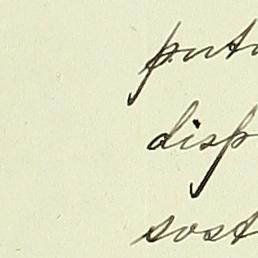 puta
disp
sost